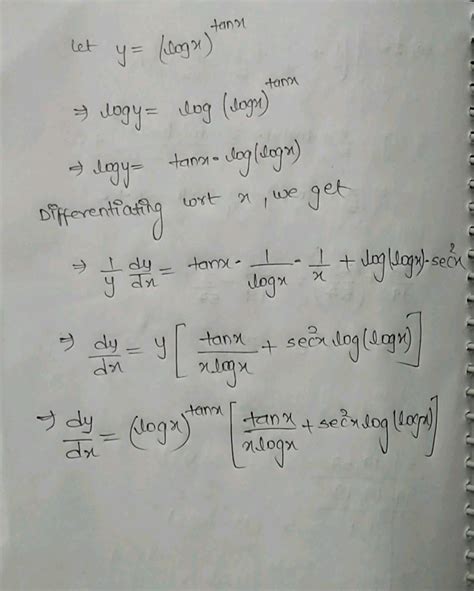 let y = (logx)^tanx
⇒ logy = log (logx)^tanx
⇒ logy = tanx · log(logx)
Differentiating wrt x, we get
⇒ 1/y dy/dx = tanx · 1/logx · 1/x + log(logx) · sec²x
⇒ dy/dx = y [ tanx/xlogx + sec²x log(logx) ]
⇒ dy/dx = (logx)^tanx [ tanx/xlogx + sec²x log(logx) ]